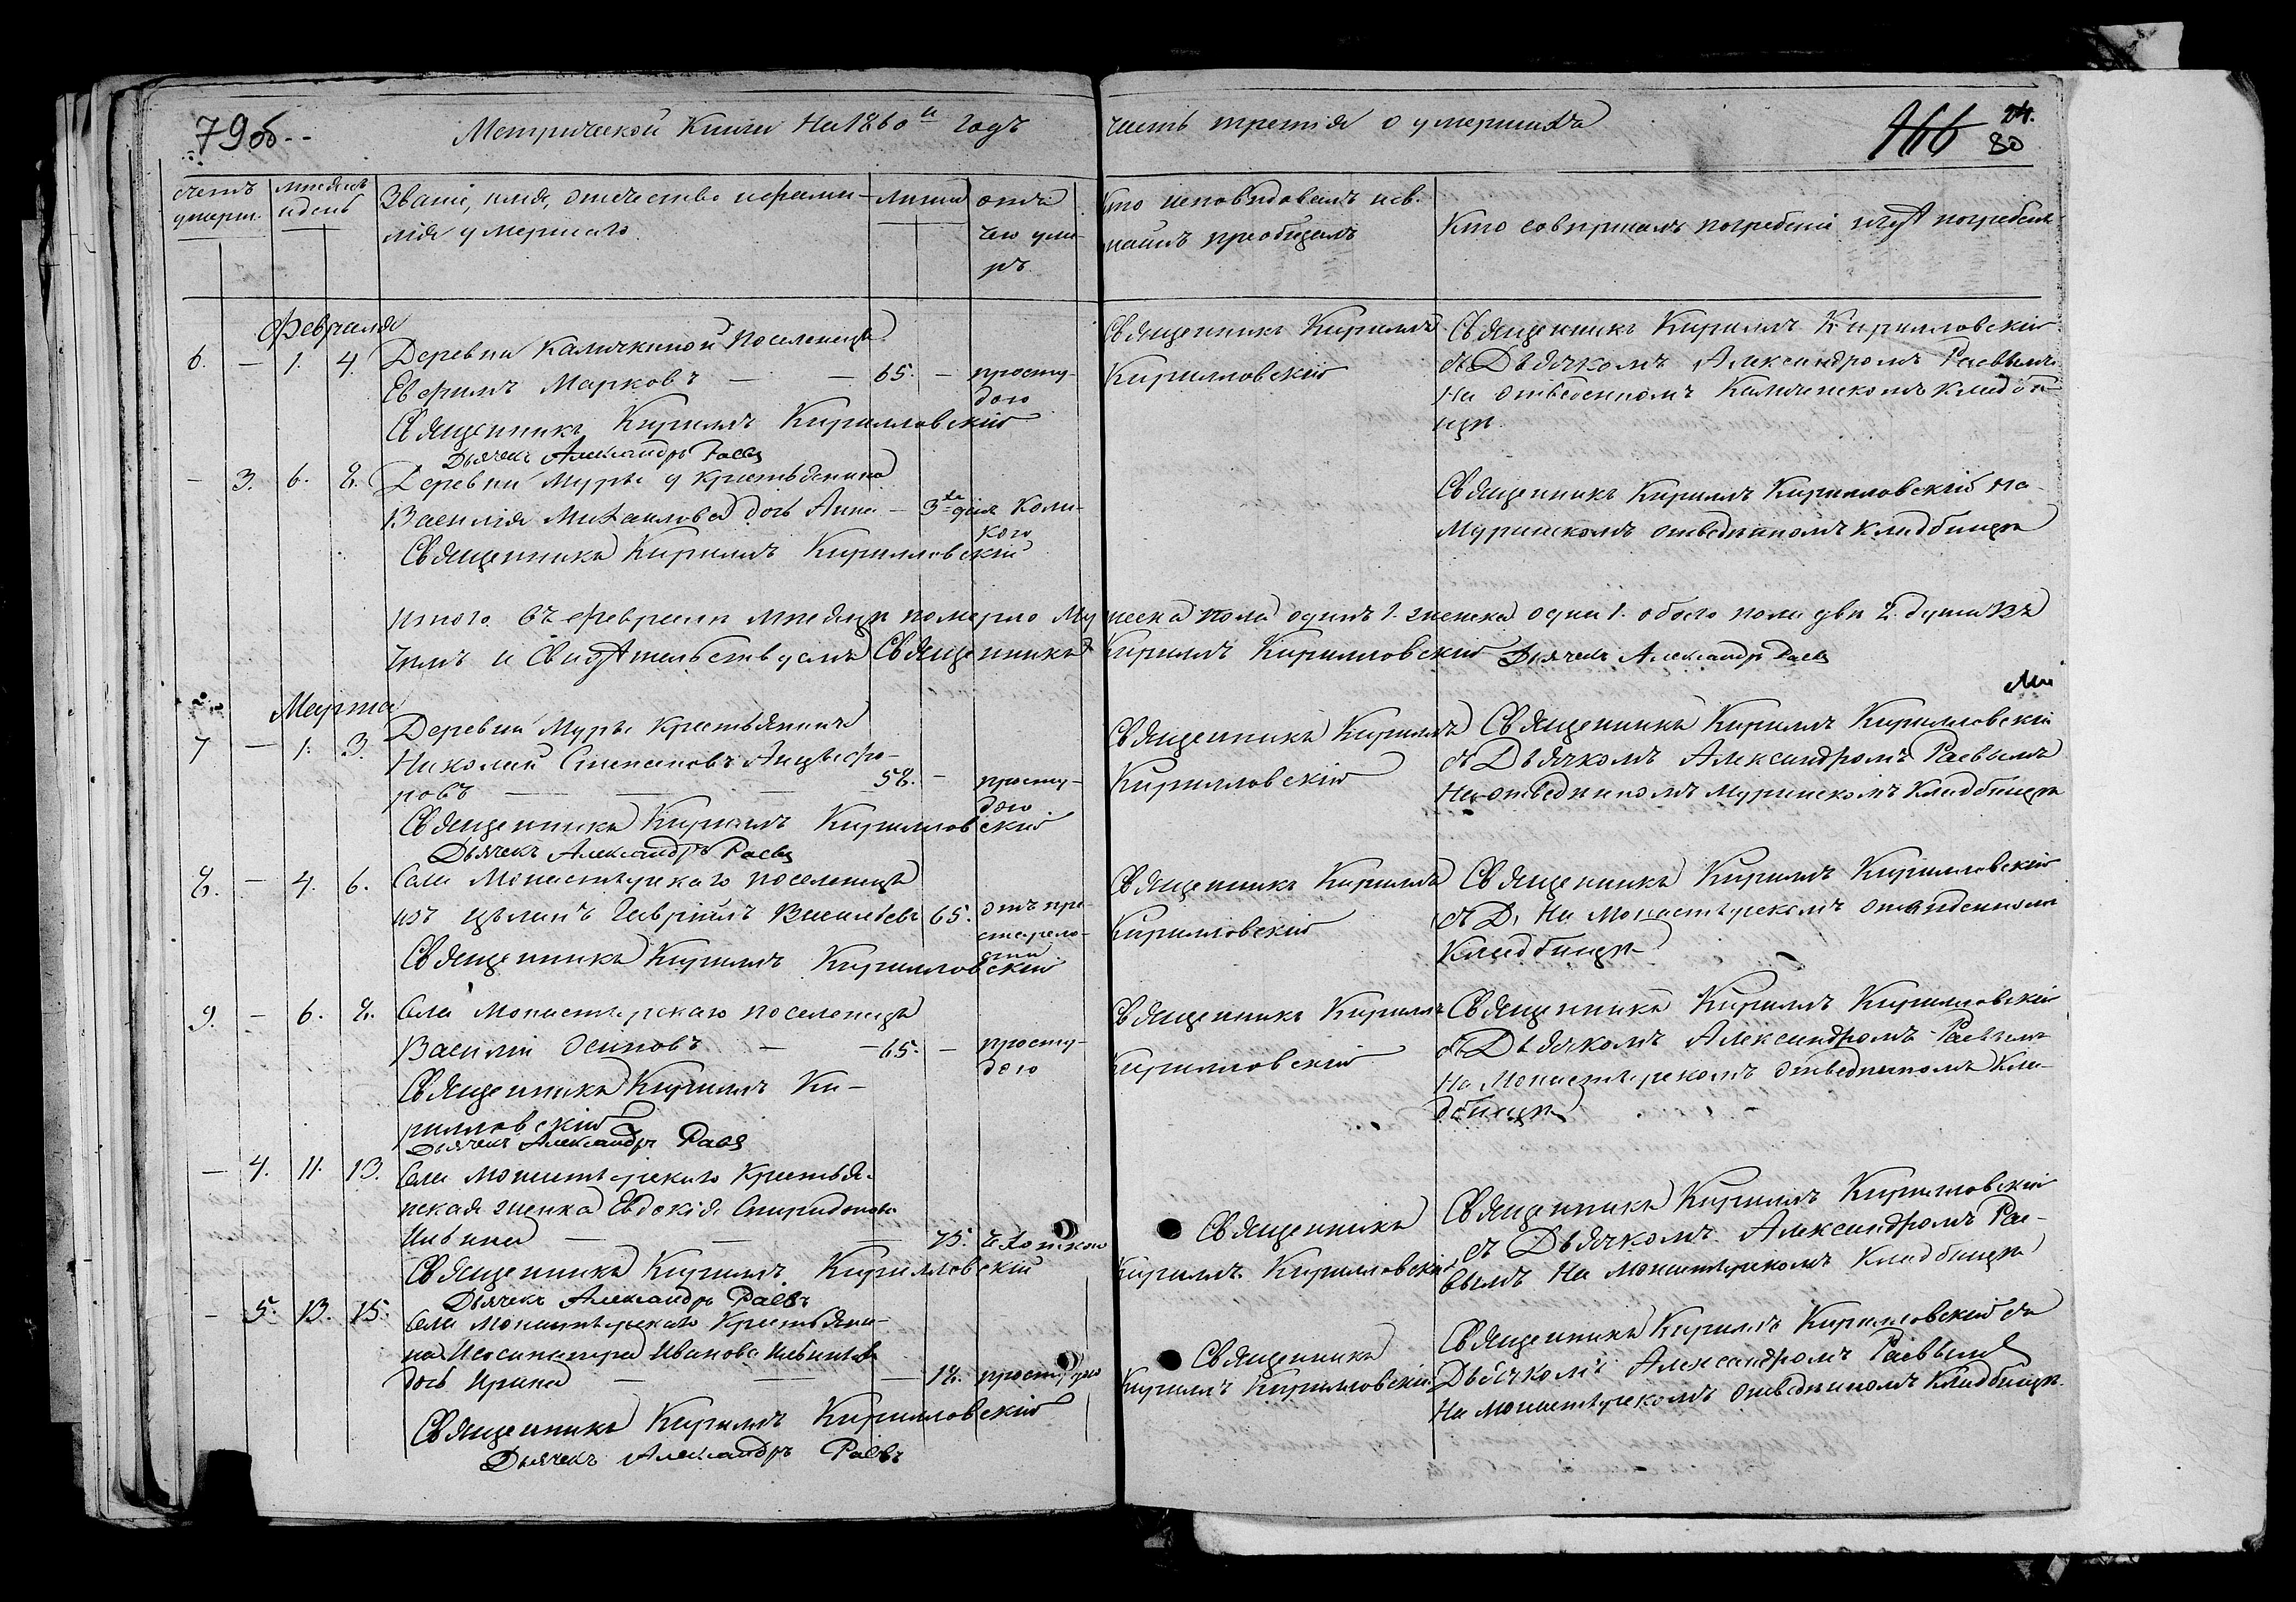 79об--
Метрической Книги На 1860й годъ
часть третія о умершихъ
166 24.
80
счетъ умерш.
мѣсяцъ и день
Званіе, имя, отечество и фами-
лія умершаго.
Лѣта
отъ чего уме-
ръ
Кто исповѣдовалъ и св.
таинъ пріобщалъ
Кто совершалъ погребеніе и гдѣ погребенъ
Февраля
6. — 1. 4. Деревни Каличкиной Поселенецъ
Евфимъ Марковъ — — 65. — просту-
дою
Священникъ Кирилъ Кирилловскій
Дьячекъ Александръ Раевъ
Священникъ Кирилъ
Кирилловскій
Священникъ Кирилъ Кирилловскій
съ Дьячкомъ Александромъ Раевымъ
На отведенномъ кладби-
щѣ.
— 3. 6. 8. Деревни Муры у крестьянина
Василія Михаилова дочь Анна — 3хъ дня коли-
кою
Священникъ Кирилъ Кирилловскій
Священникъ Кирилъ Кирилловскій на
Муринскомъ отведѣнномъ кладбищѣ
Итого въ февралѣ мѣсяцѣ померло Мужеска пола одинъ 1. женска одна 1. обоего пола двѣ 2. души Въ
чемъ и Свидѣтельствуемъ Священникъ Кирилъ Кирилловскій Дьячекъ Александръ Раевъ
Марта
7 — 1. 3. Деревни Муры Крестьянинъ
Николай Степановъ Анцыфо-
ровъ — — — 58. — просту-
дою
Священникъ Кирилъ Кирилловскій
Дьячекъ Александръ Раевъ
Священникъ Кирилъ
Кирилловскій
Священникъ Кирилъ Кирилловскій
съ Дьячкомъ Александромъ Раевымъ
На отведѣнномъ Муринскомъ Кладбищѣ
8. — 4. 6. Села Монастырскаго поселенецъ
изъ Гавріилъ Васильевъ 65. отъ пре-
старело-
сти
Священникъ Кирилъ Кирилловскій
Священникъ Кирилъ
Кирилловскій
Священникъ Кирилъ Кирилловскій
съ Д. На Монастырскомъ отведенномъ
Кладбищѣ
9. — 6. 8. Села Монастырскаго поселенецъ
Василій Осиповъ — — 65. — просту-
дою
Священникъ Кирилъ Ки-
рилловскій
Дьячекъ Александръ Раевъ
Священникъ Кирилъ
Кирилловскій
Священникъ Кирилъ Кирилловскій
съ Дьячкомъ Александромъ Раевымъ
На Монастырскомъ отведѣнномъ Кла-
дбищѣ
— 4. 11. 13. Села Монастырскаго Крестья-
нская женка Евдокія Спиридонова
— — — 75. чахоткою
Священникъ Кирилъ Кирилловскій
Дьячекъ Александръ Раевъ
Священникъ
Кирилъ Кирилловскій
Священникъ Кирилъ Кирилловскій
съ Дьячкомъ Александромъ Рае-
вымъ На Монастырскомъ Кладбищѣ
— 5. 13. 15. Села Монастырскаго Крестьяни-
на Иванова
дочь Ирина — — — 18. простудою
Священникъ Кирилъ Кирилловскій
Дьячекъ Александръ Раевъ
Священникъ
Кирилъ Кирилловскій
Священникъ Кирилъ Кирилловскій съ
Дьячкомъ Александромъ Раевымъ
На Монастырскомъ отведѣнномъ Кладбищѣ.